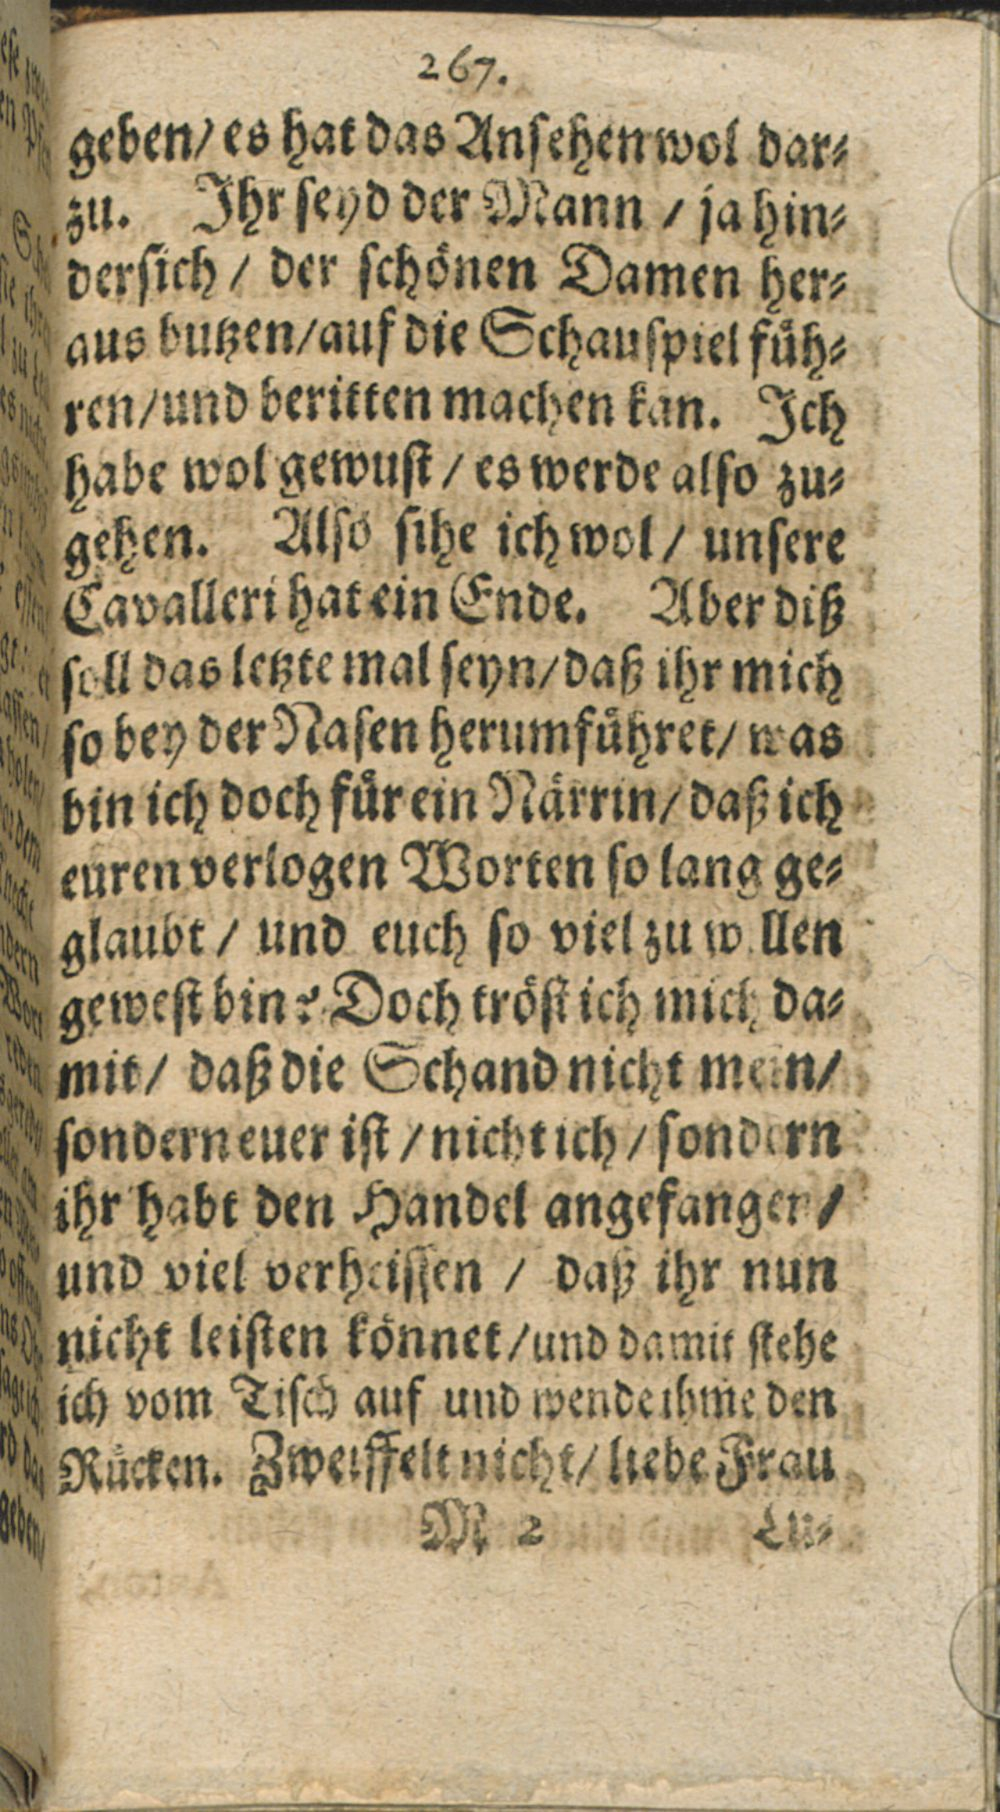 267.
geben/ es hat das Ansehen wol dar-
zu. Ihr seyd der Mann / ja hin-
dersich / der schönen Damen her-
aus butzen/auf die Schauspiel füh-
ren/und beritten machen kan. Ich
habe wol gewust / es werde also zu-
gehen. Also sihe ich wol / unsere
Cavalleri hat ein Ende. Aber diß
soll das letzte mal seyn/daß ihr mich
so bey der Nasen herumführet/ was
bin ich doch für ein Närrin/ daß ich
euren verlogen Worten so lang ge-
glaubt / und euch so viel zu w llen
gewest bin? Doch tröst ich mich da-
mit/ daß die Schand nicht mein/
sondern euer ist / nicht ich / sondern
ihr habt den Handel angefangen/
und viel verheissen / daß ihr nun
nicht leisten könnet /und damit stehe
ich vom Tisch auf und wende ihme den
Rücken. Zweiffelt nicht/ liebe Frau
M 2 Lu-